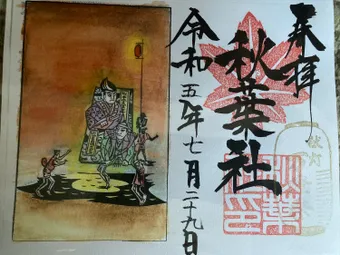 奉拝
秋葉社
令和五年七月二十九日